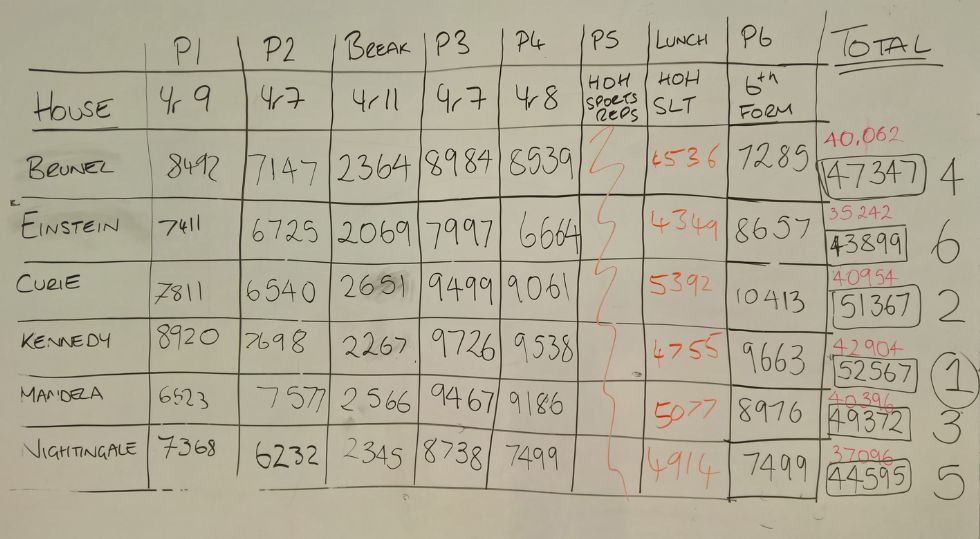 P1 P2 BREAK P3 P4 P5 LUNCH P6 TOTAL
HOUSE Yr 9 Yr 7 Yr 11 Yr 7 Yr 8 HOH SPORTS REPS HOH SLT 6th FORM
40,062
BRUNEL 8492 7147 2364 8984 8539 4536 7285 47347 4
35242
EINSTEIN 7411 6725 2069 7997 6664 4349 8657 43899 6
40954
CURIE 7811 6540 2651 9499 9061 5392 10413 51367 2
42904
KENNEDY 8920 7698 2267 9726 9538 4755 9663 52567 1
40396
MANDELA 6523 7577 2566 9467 9186 5077 8976 49372 3
37096
NIGHTINGALE 7368 6232 2345 8738 7499 4914 7499 44595 5